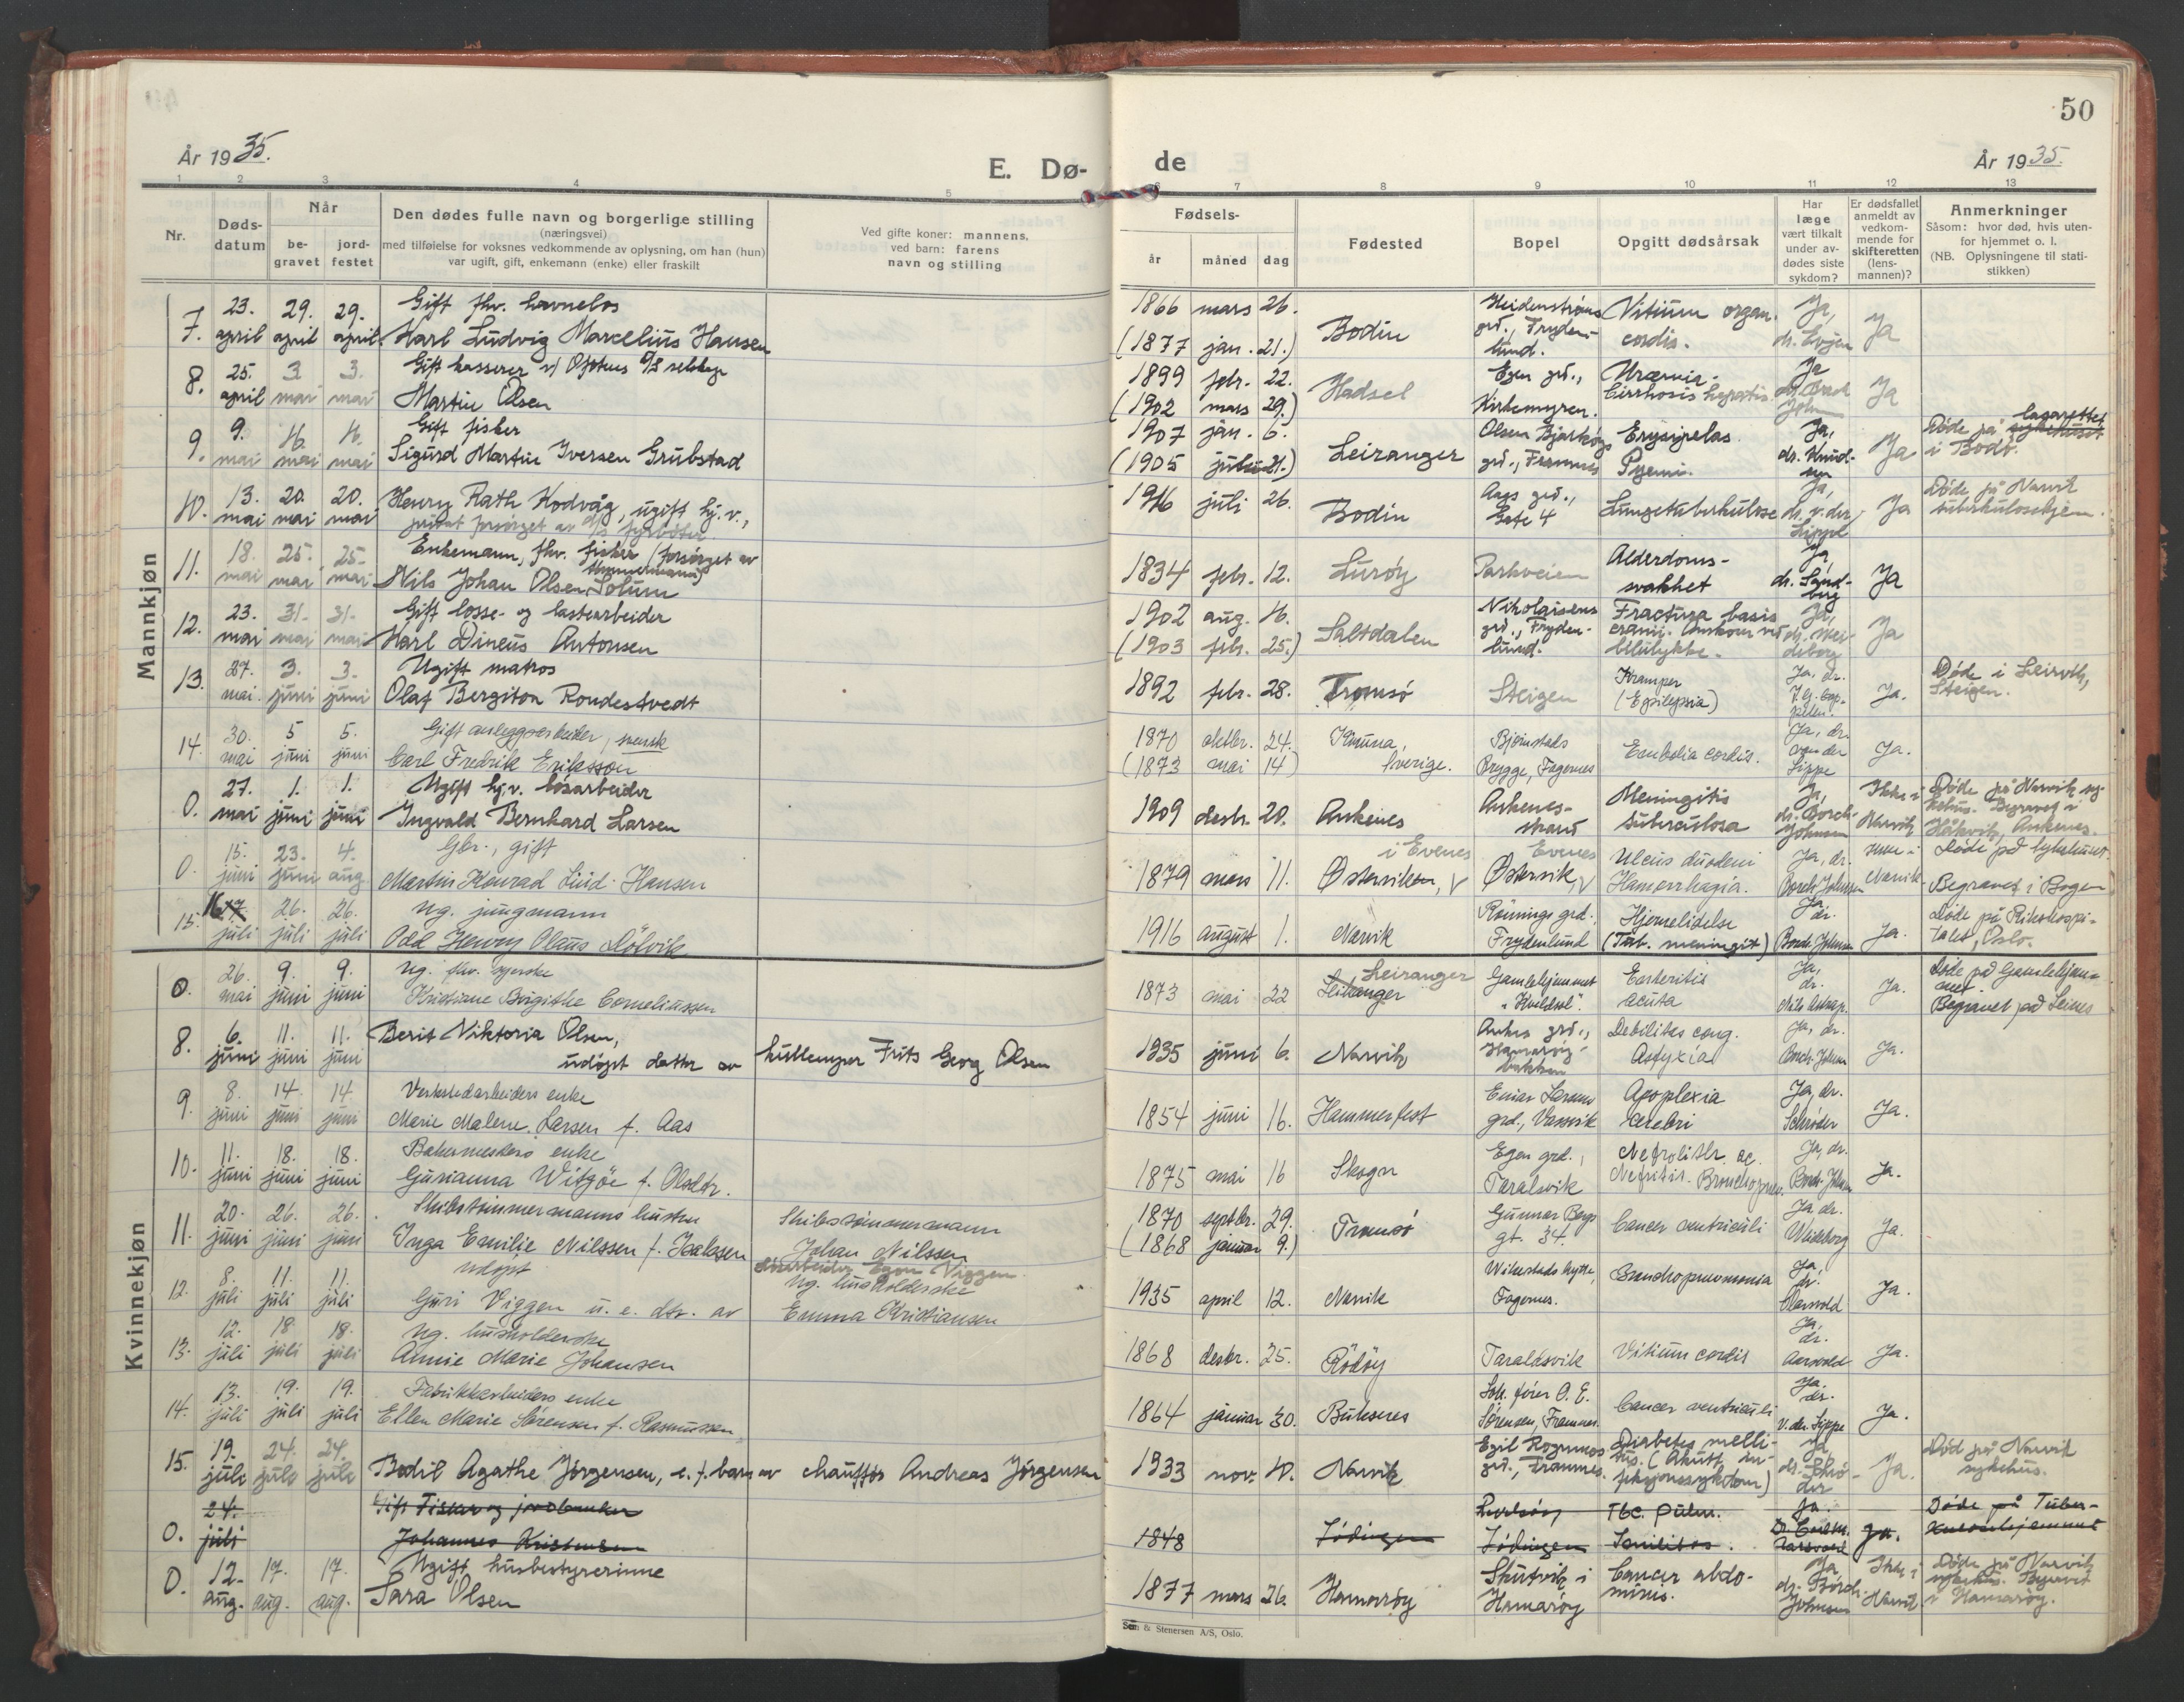 50
År 1935.
E. Dø-
de
År 1935.
1 2 3 4 5 6 7 8 9 10 11 12 13
Nr.
Døds-
datum
Når
be-
gravet
jord-
festet
Den dødes fulle navn og borgerlige stilling
(næringsvei)
med tilføielse for voksnes vedkommende av oplysning, om han (hun)
var ugift, gift, enkemann (enke) eller fraskilt
Ved gifte koner: mannens,
ved barn: farens
navn og stilling
Fødsels-
år måned dag
Fødested
Bopel
Opgitt dødsårsak
Har
læge
vært tilkalt
under av-
dødes siste
sykdom?
Er dødsfallet
anmeldt av
vedkom-
mende for
skifteretten
(lens-
mannen)?
Anmerkninger
Såsom: hvor død, hvis uten-
for hjemmet o. l.
(NB. Oplysningene til stati-
stikken)
Mannkjøn
7. 23. april 29. april 29. april Gift fhv. havnelos
Karl Ludvig Marcelius Hansen
1866 mars 26. (1877 jan. 21.) Bodin Heidenstrøms grd., Frydenlund. Vitium organ. cordis. Ja, dr. Evjen Ja
8. 25. april 3 mai 3. mai Gift kasserer
Martin Olsen
1899 febr. 22. (1902 mars 29.) Hadsel Egen grd., Kirkemyren. Uræmia. Cirrhosis hepatis Ja Ja
9. 9. mai 16. mai 16. mai Gift fisker
Sigurd Martin Iversen Grubstad
1907 jan. 6. (1905 21.) Leiranger Olsen Bjarkøys grd., Framnes Erysipelas. Pyemi. Ja, dr. Knudsen Ja Døde på sykehuset lasarettet i Bodø.
10. 13. mai 20. mai 20. mai Henry Rath Kodvåg, ugift hj. v.,
privat forsørget av fyrbøter.
1916 juli 26. Bodin Aags grd., Gate 4 Lungetuberkulose Ja, dr. v. der Lippe Ja Døde på Narvik tuberkulosehjem.
11. 18. mai 25. mai 25. mai Enkemann, fhv. fisker (forsørget av
Nils Johan Olsen Solum
1834 febr. 12. Lurøy Parkveien Alderdomssvakhet Ja, dr. Sandberg Ja
12. 23. mai 31. mai 31. mai Gift losse- og lastearbeider
Karl Dineus Antonsen
1902 aug. 16. (1903 febr. 25.) Saltdalen Nikolaisens grd., Frydenlund. Fractura basis cranii. Ja, Ja
13. 27. mai 3. juni 3. juni Ugift matros
Olaf Bergiton Rondestvedt
1892 febr. 28. Tromsø Steigen Kramper (Epilepsia) Ja, dr. Ja. Døde i Leirvik, Steigen.
14. 30. mai 5 juni 5. juni Gift anleggsarbeider, svensk
Carl Fredrik Eriksson
1870 oktbr. 24. (1873 mai 14) Sverige. Bjørnstads Brygge, Fagernes Embolia cordis. Ja, dr. von der Lippe Ja.
0. 27. mai 1. juni 1. juni Ugift hj. v. løsarbeider
Ingvald Bernhard Larsen
1909 desbr. 20. Ankenes Ankenesstrand Meningitis tuberculosa Ja, dr. Borch-Johnsen Ikke i Narvik Døde på Narvik sykehus. Begravet i Håkvik, Ankenes.
0. 15. juni 23. juni 4. aug. Gbr., gift
Martin Konrad Lind-Hansen
1879 mars 11. i Evenes Østervikten, V Evenes Østervik, V Ulcus duodeni Hæmorrhagia. Ja, dr. Borch-Johnsen Ikke i Narvik. Døde på Sykehuset. Begravet i Bogen
15. 16 juli 26. juli 26. juli Ug. jungmann
Odd Henry Olaus Dølvik
1916 august 1. Narvik Rønnings grd. Frydenlund Hjernelidelse (Tub. meningit) Ja dr. Borch-Johnsen Ja. Døde på Rikshospitalet, Oslo.
Kvinnekjøn
0. 26. mai 9. juni 9. juni Ug. fhv. syerske
Kristiane Birgithe Corneliussen
1873 mai 22 Leiranger Gamlehjemmet "Kveldsol". Enteritis acuta Ja, dr. Ja. Døde på Gamlehjemmet. Begravet på Leines
8. 6. juni 11. juni 11. juni Berit Viktoria Olsen,
udøpt datter av kullemper Frits Georg Olsen
1935 juni 6. Narvik Ankers grd., Hamarøybakken Debilitas cong. Asfyxia Ja, dr. Borch-Johnsen Ja.
9. 8. juni 14. juni 14. juni Verkstedarbeiders enke
Marie Malene Larsen f. Aas
1854 juni 16. Hammerfest Einar Larsens grd., Vassvik Apoplexia cerebri Ja, dr. Schrøder Ja.
10. 11. juni 18. juni 18. juni Bakermesters enke
Gurianna Witsøe f. Olsdtr.
1875 mai 16 Skogn Egen grd., Taraldsvik Nefrolith. ac. Nefritis. Bronchopneu. Ja, dr. Borch-Johnsen Ja.
11. 20. juni 26. juni 26. juni Skibstømmermanns hustru
Inga Emilie Nilssen f. Isaksen
Skibstømmermann
Johan Nilssen
1870 septbr. 29. (1868 januar 9.) Tromsø Gunnar Bergs gt. 34. Cancer ventriculi Ja, dr. Wideborg Ja.
12. 8. juli 11. juli 11. juli udøpt
Guri Viggen u. e. dtr. av
Egon Viggen.
Ug. husholderske
Emma Kristiansen
1935 april 12. Narvik Wikestads hytte, Fagernes. Bronchopneumonia Ja, dr. Aarsvold Ja.
13. 12. juli 18 juli 18. juli Ug. husholderske
Annie Marie Johansen
1868 desbr. 25. Rødøy Taraldsvik Vitium cordis Ja, dr. Aarsvold Ja.
14. 13. juli 19. juli 19. juli Fabrikkarbeiders enke
Ellen Marie Sørensen f. Rasmussen
1864 januar 30. Buksnes Lok. fører O. E. Sørensen, Framnes. Cancer ventriculi Ja. dr. V. der Lippe Ja.
15. 19. juli 24. juli 24. juli Bodil Agathe Jørgensen, e. f. barn av chauffør Andreas Jørgensen
1933 nov. 10. Narvik Egil Rognmos grd., Framnes. Diabetes mellitus. (Akutt infeksjonssykdom) Ja, dr. Schrøder Ja. Død på Narvik sykehus.
0. 24. juli Gift Fisker og jordbruker
Johannes Kristensen
1848 Lødingen Lødingen Tbc. pulm. Senilitas. Ja. Ja. Døde på Tuberkulosehjemmet
0. 12. aug. 17. aug. 17. aug. Ugift husbestyrerinne
Sara Olsen
1877 mars 26. Hamarøy Skutvik i Hamarøy Cancer abdominis. Ja dr. Borch-Johnsen Ikke i Narvik. Døde på Narvik sykehus. Begravet i Hamarøy.
Sem & Stenersen A/S, Oslo.